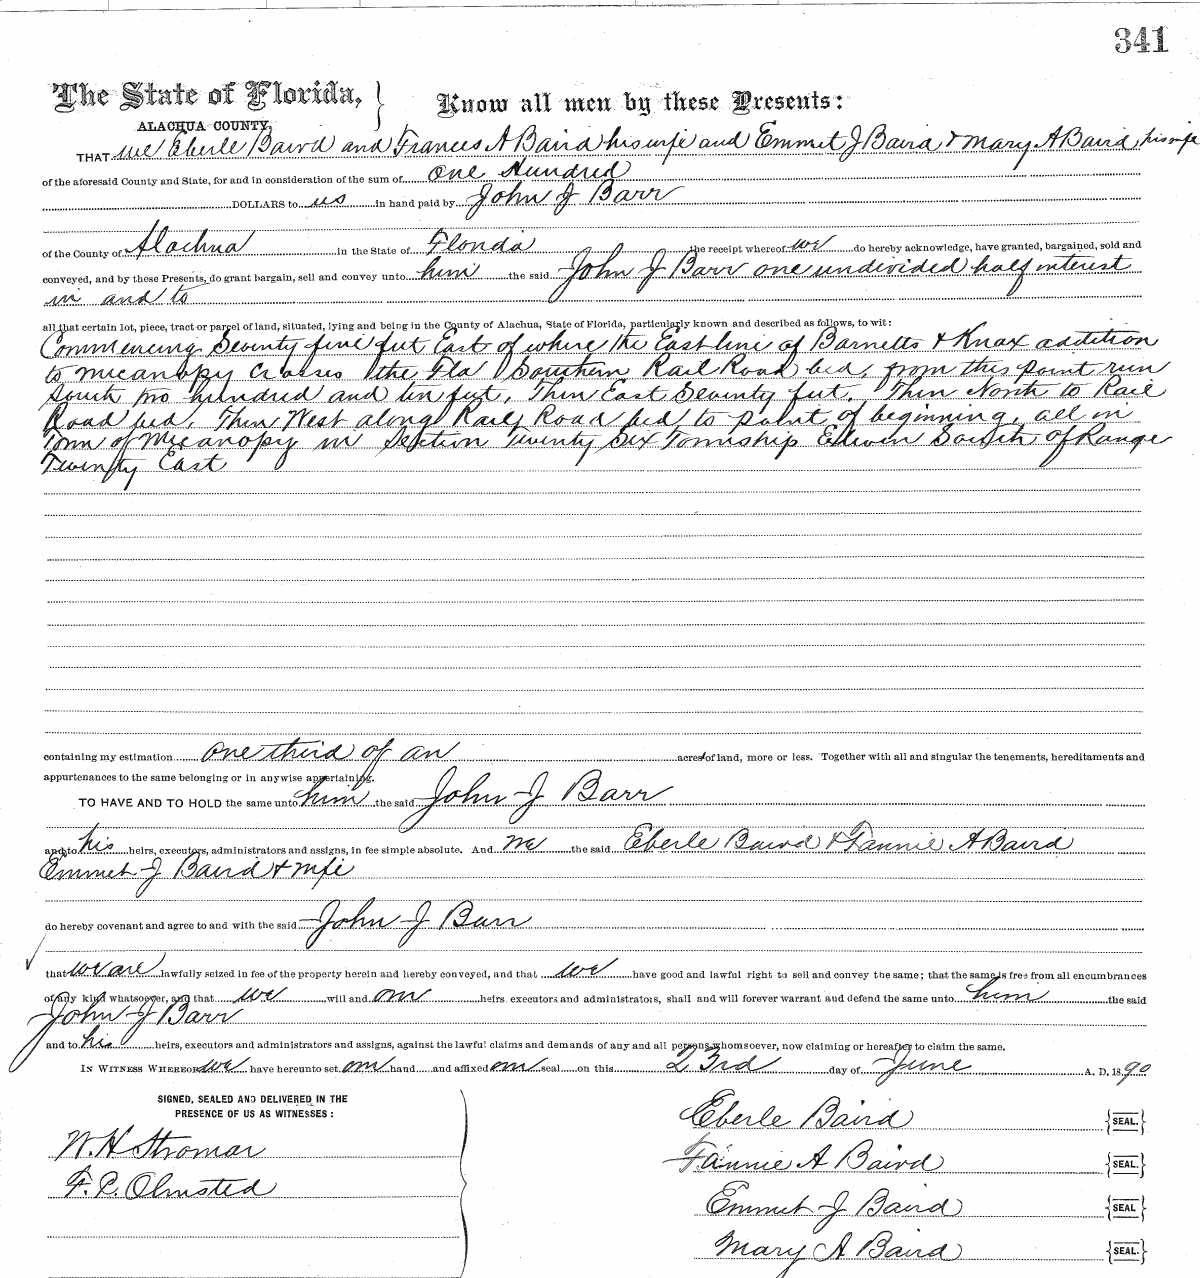 341
The State of Florida, }
Know all men by these Presents:
ALACHUA COUNTY,
THAT we Eberle Baird and Frances A Baird his wife and Emmet J Baird & Mary A Baird his wife
of the aforesaid County and State, for and in consideration of the sum of One Hundred
DOLLARS to us in hand paid by John J Barr
of the County of Alachua in the State of Florida the receipt whereof we do hereby acknowledge, have granted, bargained, sold and
conveyed, and by these Presents, do grant bargain, sell and convey unto him the said John J Barr one undivided half interest
in and to
all that certain lot, piece, tract or parcel of land, situated, lying and being in the County of Alachua, State of Florida, particularly known and described as follows, to wit:
Commencing Seventy five feet East of where the East line of Barnetts & Knax addition
to Micanopy crosses the Fla Southern Rail Road bed, from this point run
South two hundred and ten feet, Then East Seventy feet. Then North to Rail
Road bed, Then West along Rail Road bed to point of beginning, all in
Town of Micanopy in Section Twenty Six Township Eleven South of Range
Twenty East
containing my estimation one third of an acre of land, more or less. Together with all and singular the tenements, hereditaments and
appurtenances to the same belonging or in anywise appertaining.
TO HAVE AND TO HOLD the same unto him the said John J Barr
and to his heirs, executors, administrators and assigns, in fee simple absolute. And we the said Eberle Baird & Fannie A Baird
Emmet J Baird & wife
do hereby covenant and agree to and with the said John J Barr
that we are lawfully seized in fee of the property herein and hereby conveyed, and that we have good and lawful right to sell and convey the same; that the same is free from all encumbrances
of any kind whatsoever, and that we will and our heirs executors and administrators, shall and will forever warrant and defend the same unto him the said
John J Barr
and to his heirs, executors and administrators and assigns, against the lawful claims and demands of any and all persons whomsoever, now claiming or hereafter to claim the same.
IN WITNESS WHEREOF we have hereunto set our hand and affixed our seal on this 23rd day of June A, D, 1890
SIGNED, SEALED AND DELIVERED IN THE
PRESENCE OF US AS WITNESSES:
Eberle Baird {SEAL.}
W. H. Stromar
Fannie A Baird {SEAL.}
F. P. Olmsted
Emmet J Baird {SEAL}
Mary A Baird {SEAL.}